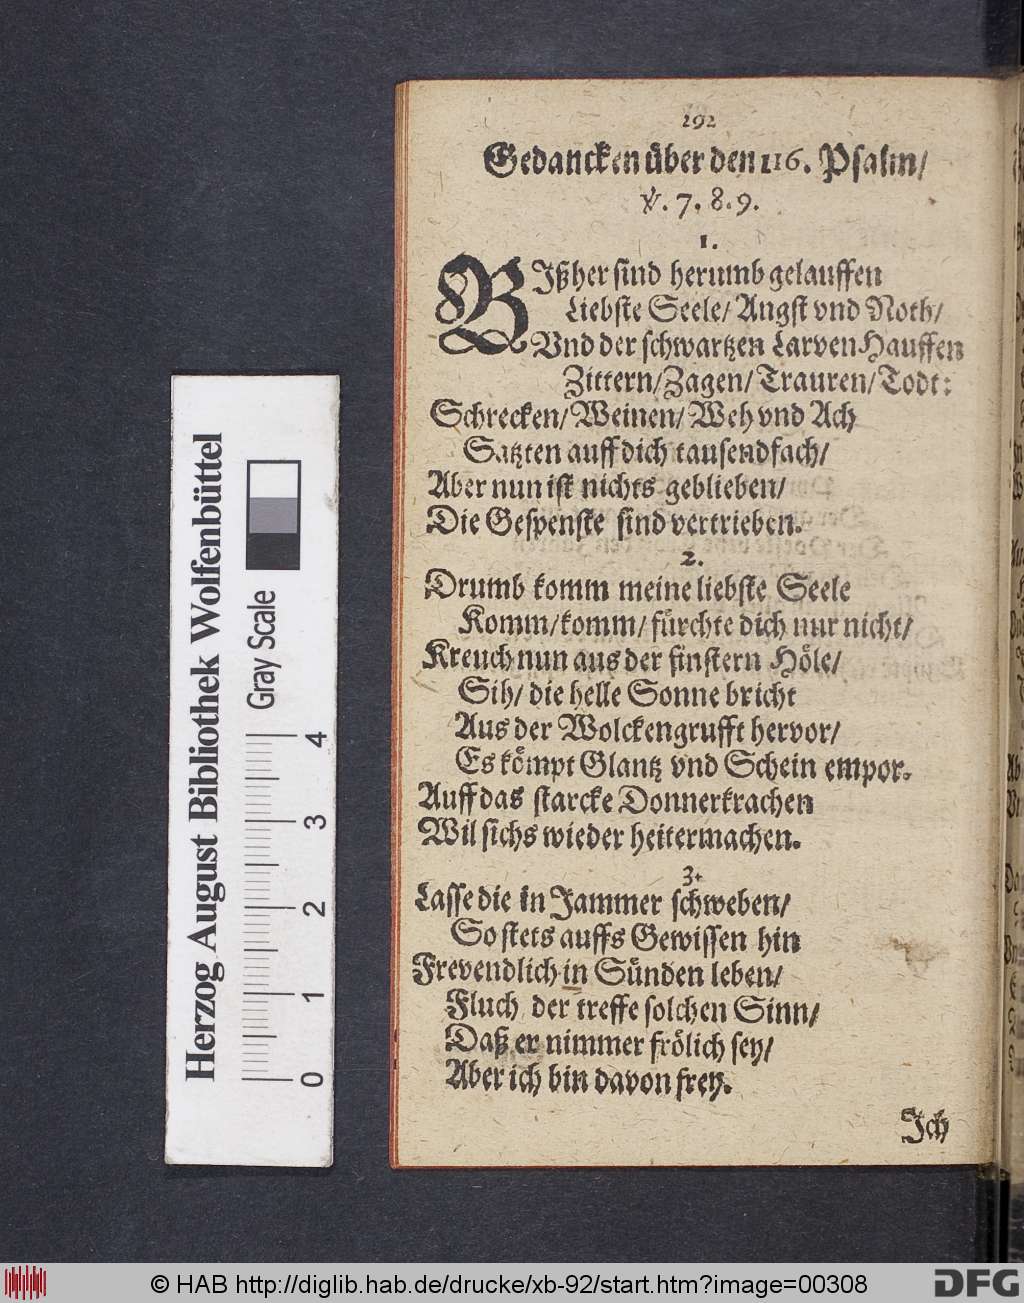 292
Gedancken über den 116. Psalm/
℣. 7. 8. 9.
1.
BIßher sind herumb gelauffen
Liebste Seele/ Angst vnd Noth/
Vnd der schwartzen Larven Hauffen
Zittern/ Zagen/ Trauren/ Todt:
Schrecken/ Weinen/ Weh vnd Ach
Satzten auff dich tausendfach/
Aber nun ist nichts geblieben/
Die Gespenste sind vertrieben.
2.
Drumb komm meine liebste Seele
Komm/ komm/ fürchte dich nur nicht/
Kreuch nun aus der finstern Höle/
Sih/ die helle Sonne bricht
Aus der Wolckengrufft hervor/
Es kömpt Glantz vnd Schein empor.
Auff das starcke Donnerkrachen
Wil sichs wieder heitermachen.
3.
Lasse die in Jammer schweben/
So stets auffs Gewissen hin
Frevendlich in Sünden leben/
Fluch der treffe solchen Sinn/
Daß er nimmer frölich sey/
Aber ich bin davon frey.
Jch
Herzog August Bibliothek Wolfenbüttel
Gray Scale
0 1 2 3 4
© HAB http://diglib.hab.de/drucke/xb-92/start.htm?image=00308
DFG